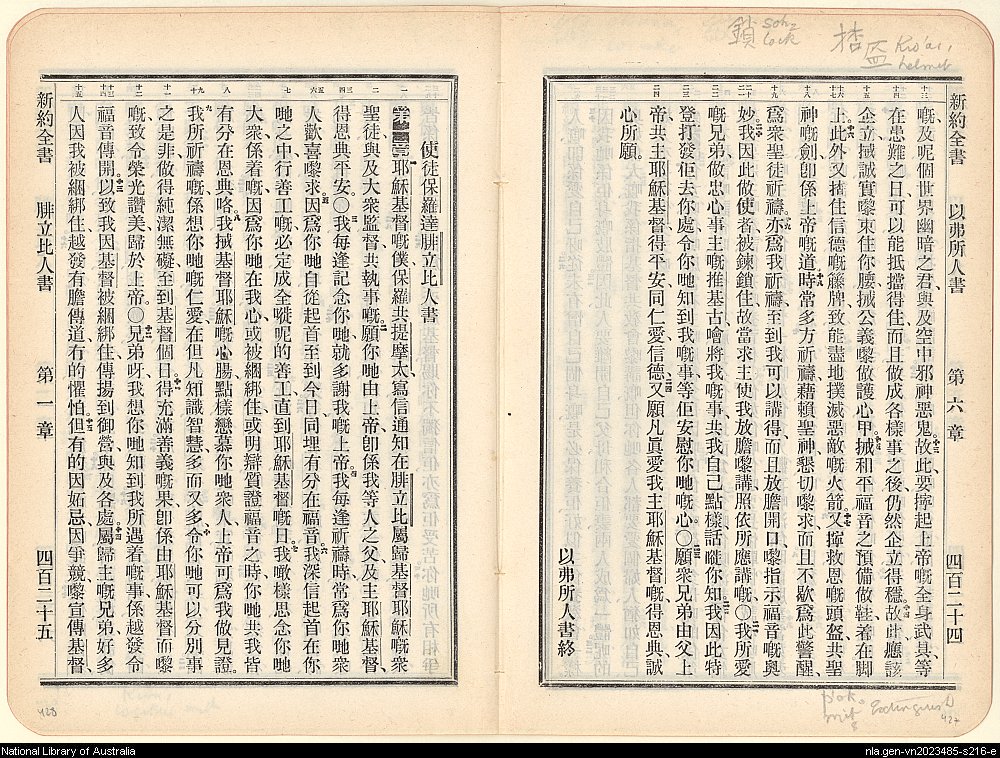 鎖 Soh = lock
新約全書 以弗所人書 第六章 四百二十四
嘅及呢個世界幽暗之君、與及空中邪神惡鬼。故此要擰起上帝嘅全身武具、等
在患難之日、可以能抵擋得住、而且做成各樣事之後、仍然企立得穩。故此應該
企立、搣誠實嚟束住你腰、搣公義嚟做護心甲、搣和平福音之預備做鞋、着在脚
上。此外又揸住信德嘅籐牌、致能盡地撲滅惡敵嘅火箭。又攞救恩嘅頭盔、共聖
神嘅劍、卽係上帝嘅道。時常多方祈禱、藉賴聖神懇切嚟求、而且不歇爲此警醒、
爲衆聖徒祈禱。亦爲我祈禱、至到我可以講得、而且放膽開口、嚟指示福音嘅奧
妙。我因此做使者、被鍊鎖住、故當求主使我放膽嚟講、照依所應講嘅。〇我所愛
嘅兄弟、做忠心事主嘅推基古、噲將我嘅事、共我自己點樣話你知。我因此特
登打發佢去你處、令你哋知到我嘅事、等佢安慰你哋嘅心。〇願衆兄弟由父上
帝、共主耶穌基督得平安、同仁愛信德。又願凡眞愛我主耶穌基督嘅、得恩典、誠
心所願。
以弗所人書終
427
新約全書 腓立比人書 第一章 四百二十五
使徒保羅達腓立比人書
耶穌基督嘅僕保羅、共提摩太、寫信通知在腓立比屬歸基督耶穌嘅衆
聖徒、與及大衆監督、共執事嘅。願你哋由上帝、卽係我等人之父、及主耶穌基督、
得恩典平安。〇我每逢記念你哋、就多謝我嘅上帝。我每逢祈禱、時常爲你哋衆
人歡喜嚟求。因爲你哋自從起首、至到今日、同埋有分在福音。我深信起首在你
哋之中、行善工嘅、必定成全嘥呢的善工、直到耶穌基督嘅日。我噉樣思念你哋
大衆係着嘅、因爲你哋在我心、或被綑綁住、或明辯質證福音之時、你哋共我皆
有分在恩典咯。我搣基督耶穌嘅心腸、點樣戀慕你哋衆人、上帝可爲我做見證。
我所祈禱嘅、係想你哋嘅仁愛、在但凡知識智慧、多而又多。令你哋可以分別事
之是非、做得純潔無礙、至到基督個日。得充滿善義嘅果、卽係由耶穌基督而嚟
嘅、致令榮光讚美歸於上帝。〇兄弟呀、我想你哋知到我所遇着嘅事、係越發令
福音傳開。以致我因基督被綑綁住、傳揚到御營、與及各處。屬歸主嘅兄弟、好多
人因我被綑綁住、越發有膽傳道、冇的懼怕。但有的因妬忌、因爭競嚟宣傳基督、
428
National Library of Australia
nla.gen-vn2023485-s216-e